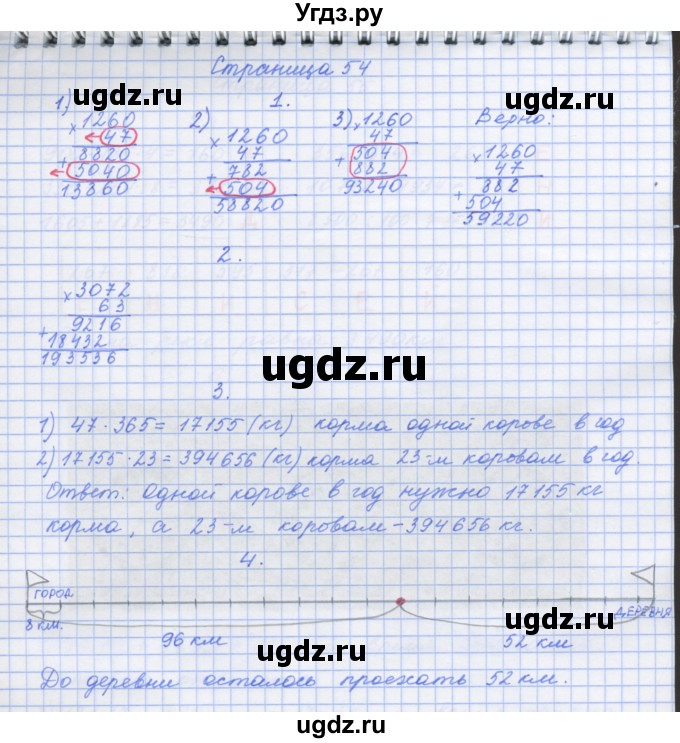 Угдз.ру
Страница 54
1.
1)
×1260
47
+8820
5040
13860
2)
×1260
47
+782
504
58820
3)
×1260
47
+504
882
93240
Верно:
×1260
47
+882
504
59220
2.
×3072
63
+9216
18432
193536
3.
1) 47 · 365 = 17155 (кг) корма одной корове в год
2) 17155 · 23 = 394656 (кг) корма 23-м коровам в год.
Ответ: одной корове в год нужно 17155 кг
корма, а 23-м коровам - 394656 кг.
4.
ГОРОД
ДЕРЕВНЯ
8 км.
96 км
52 км
До деревни осталось проехать 52 км.
ugdz.ru
ugdz.ru
ugdz.ru
ugdz.ru
ugdz.ru
ugdz.ru
ugdz.ru
ugdz.ru